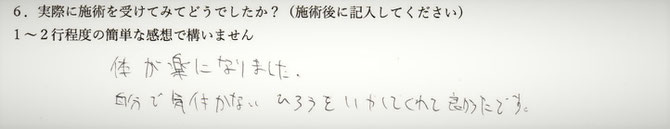 6．実際に施術を受けてみてどうでしたか？（施術後に記入してください）
1～2行程度の簡単な感想で構いません
体が楽になりました．
自分で気付かない ひろうをいやしてくれて良かったです。